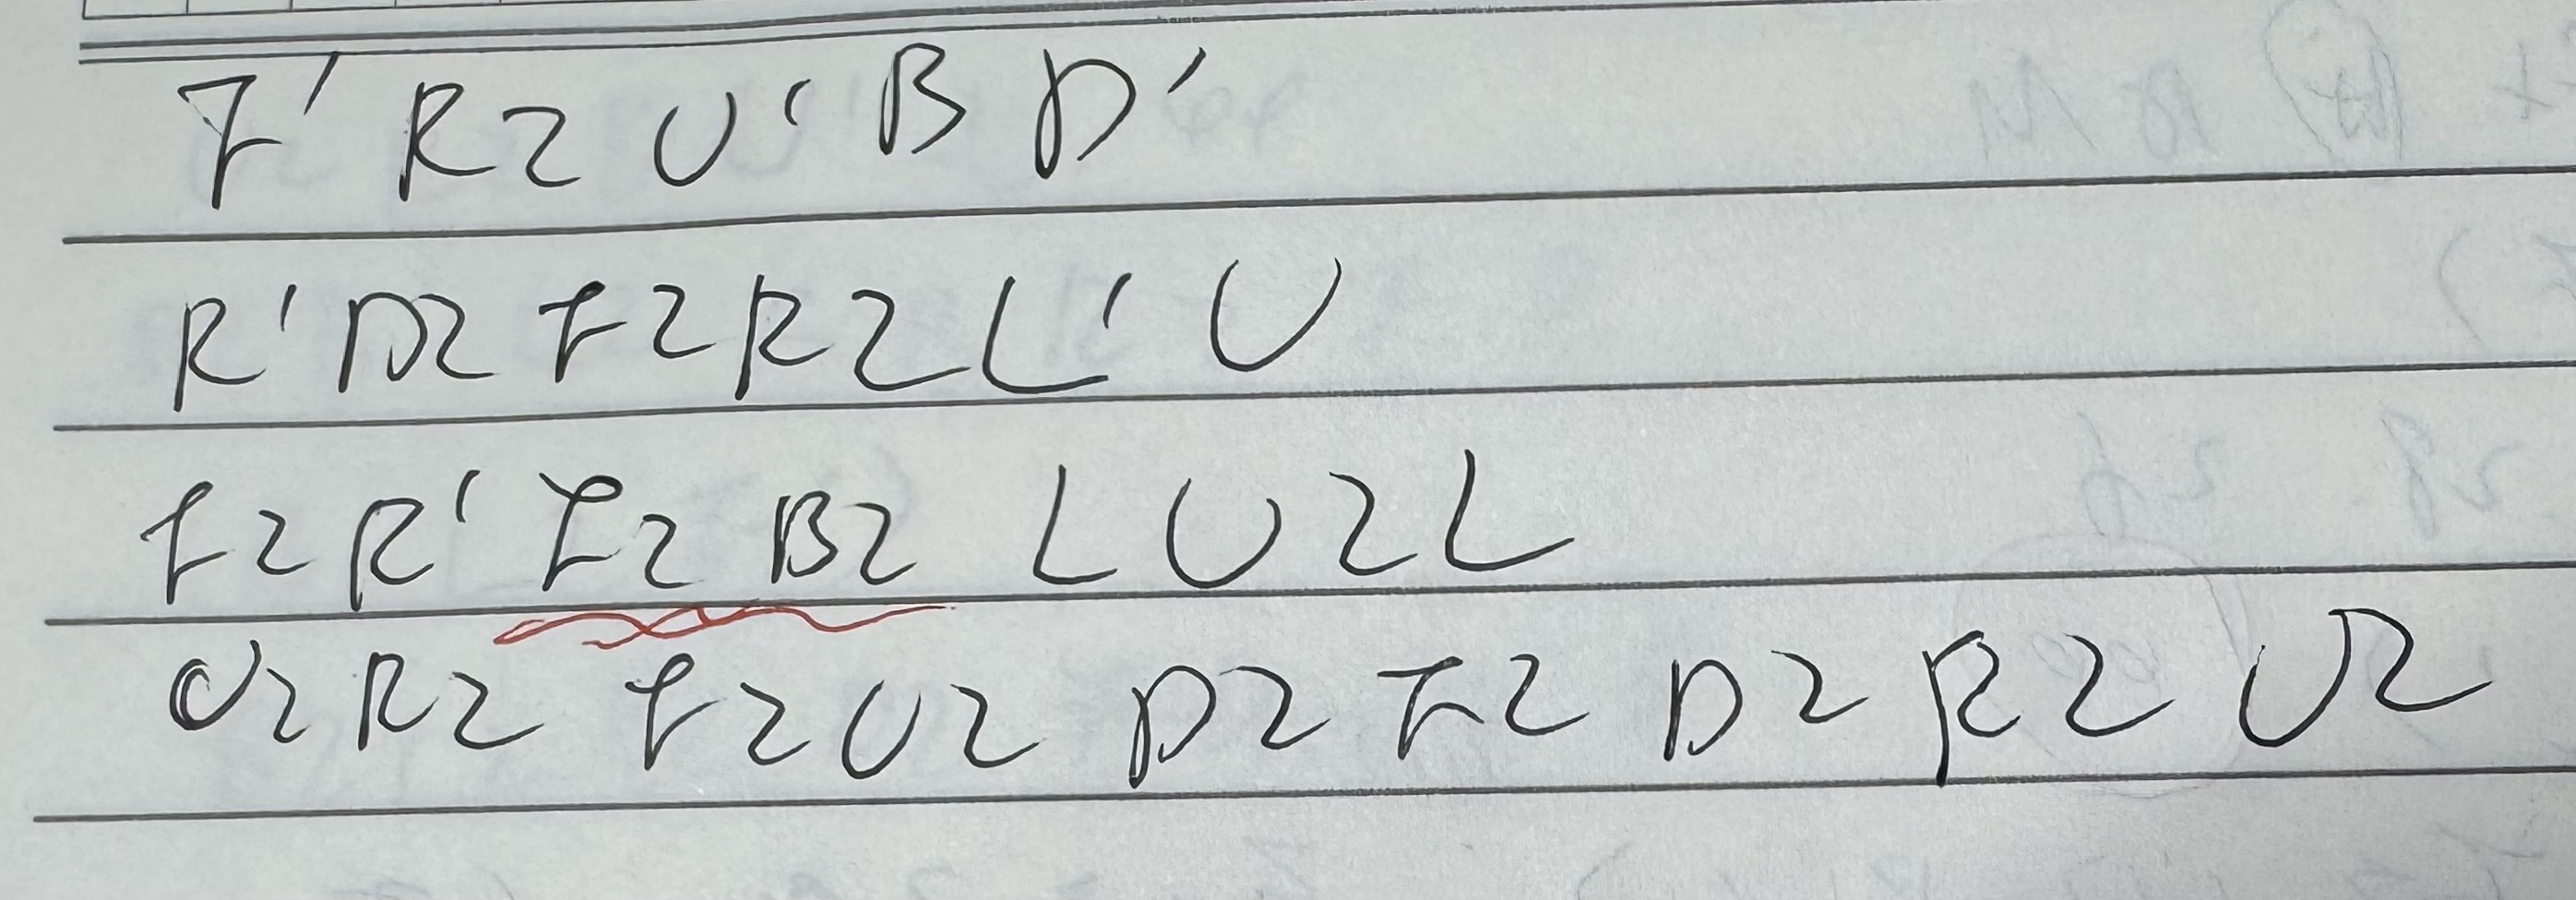 F' R2 U' B D'
R' D2 F2 R2 L' U
F2 R' F2 B2 L U2 L
U2 R2 F2 U2 D2 F2 D2 R2 U2